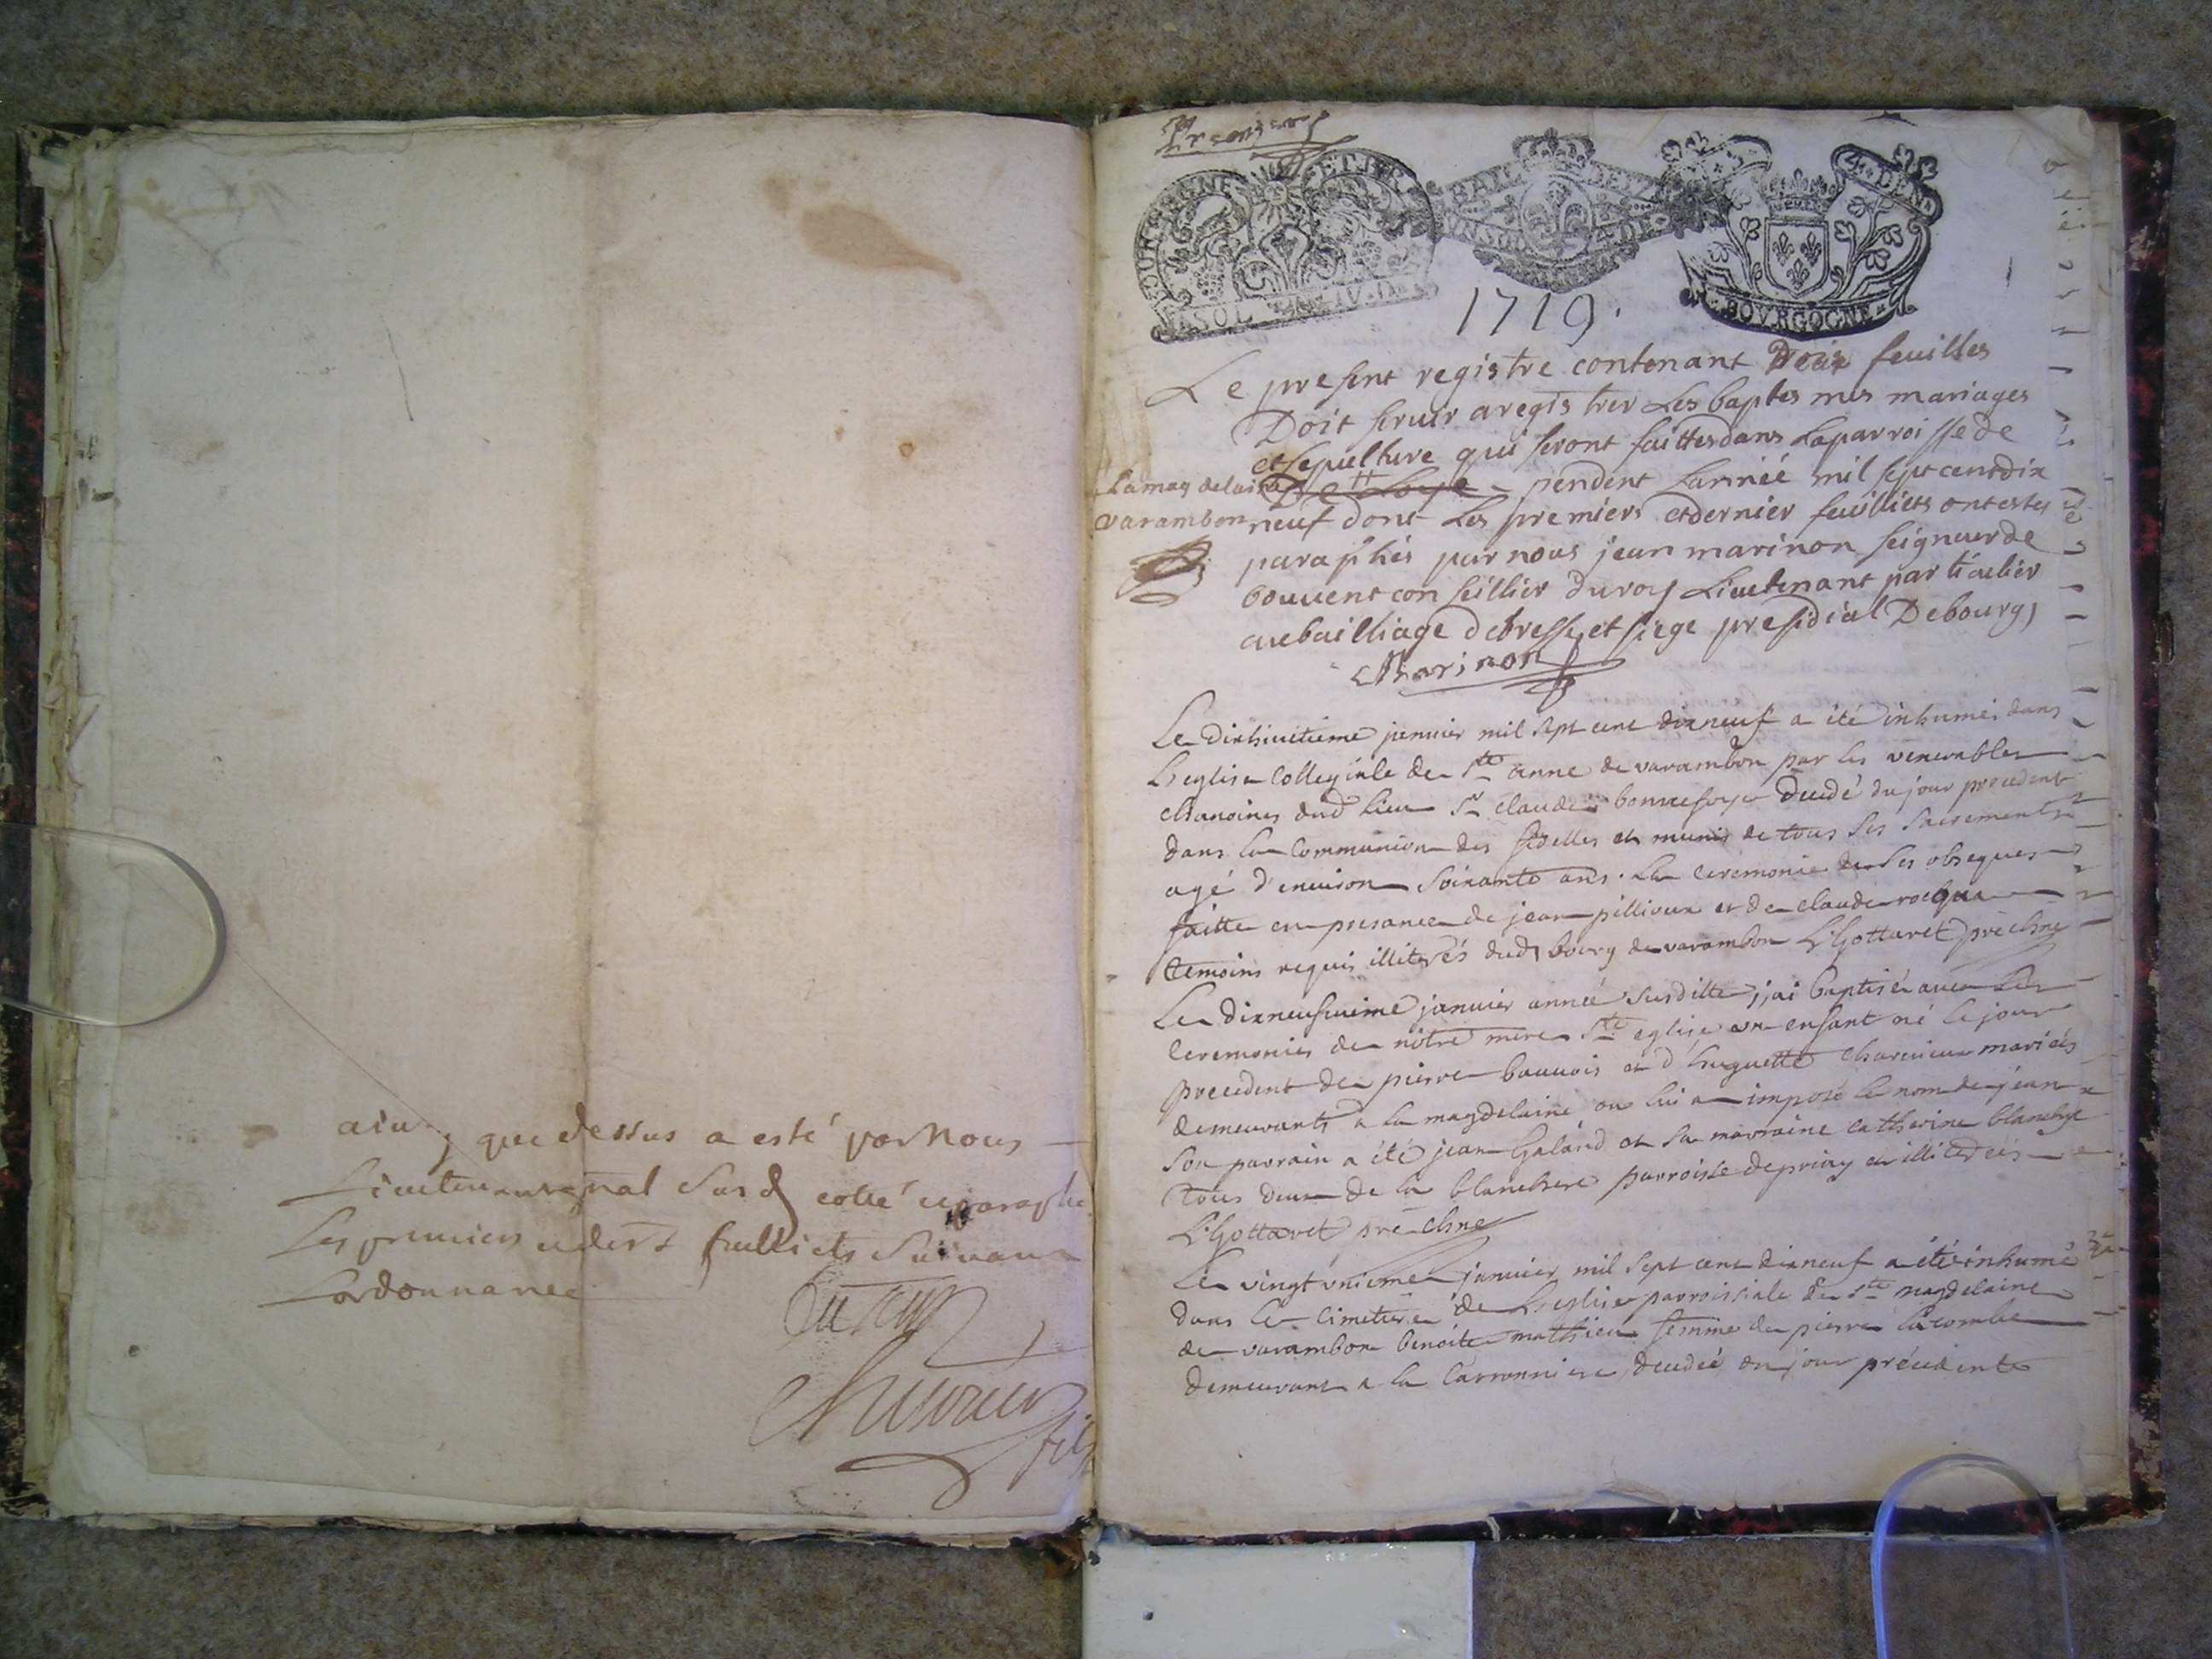 ainsy que dessus a esté par Nous
Lieutenant gnal Susd cotté et paraphé
Les premiers et der feullietz Suivant
Lordonnance
fils
BOURGOGNE
ASOL
1719.
BOVRGOGNE
Le present registre contenant Doix feuilles
Doit servir aregistrer Les baptes mes mariages
et sepulture qui seront faittes dans La parroisse de
La magdelaine pendent Lannéé mil sept cent dix
varambon neuf dont Les premiers et dernier feuilliets ont estes
paraphés par nous jean marinon seignuer de
bouvent conseillier du roy Lieutenant particulier
au bailliage de bresse et siege presidial De bourg
Marinon
Le Dixhuitieme janvier mil sept cent dixneuf a été inhumé dans
L'eglise Collegiale de Ste anne de varambon par les venerables
chanoines dud lieu Sr claude bonnefoye decedé du jour precedent
dans la Communion des fidelles et munis de tous ses sacrements
agé d'environ soixante ans. La ceremonie de ses obseques
faitte en presance de jean pillioux et de claude
temoins requis illiterés dud bourg de varambon L'Gottaret pre chne
Le dixneufvieme janvier année susditte, j'ai baptisé avec les
ceremonies de nôtre mere Ste eglise, un enfant né le jour
precedent de pierre bauvois et d'huguette mariés
demeurants a la magdelaine on lui a imposé le nom de jean
son parrain a été jean Galand et sa marraine catherine blanchye
tous deux de la blanchere parroisse de priay et illiterés
L'Gottaret pre chne
Le vingt unieme janvier mil sept cent dixneuf a été inhumé
dans le cimetiere de L'eglise parroissiale de Ste magdelaine
de varambon benoite mathieu femme de pierre lacombe
demeurant a la Carronniere decedeé du jour précédent